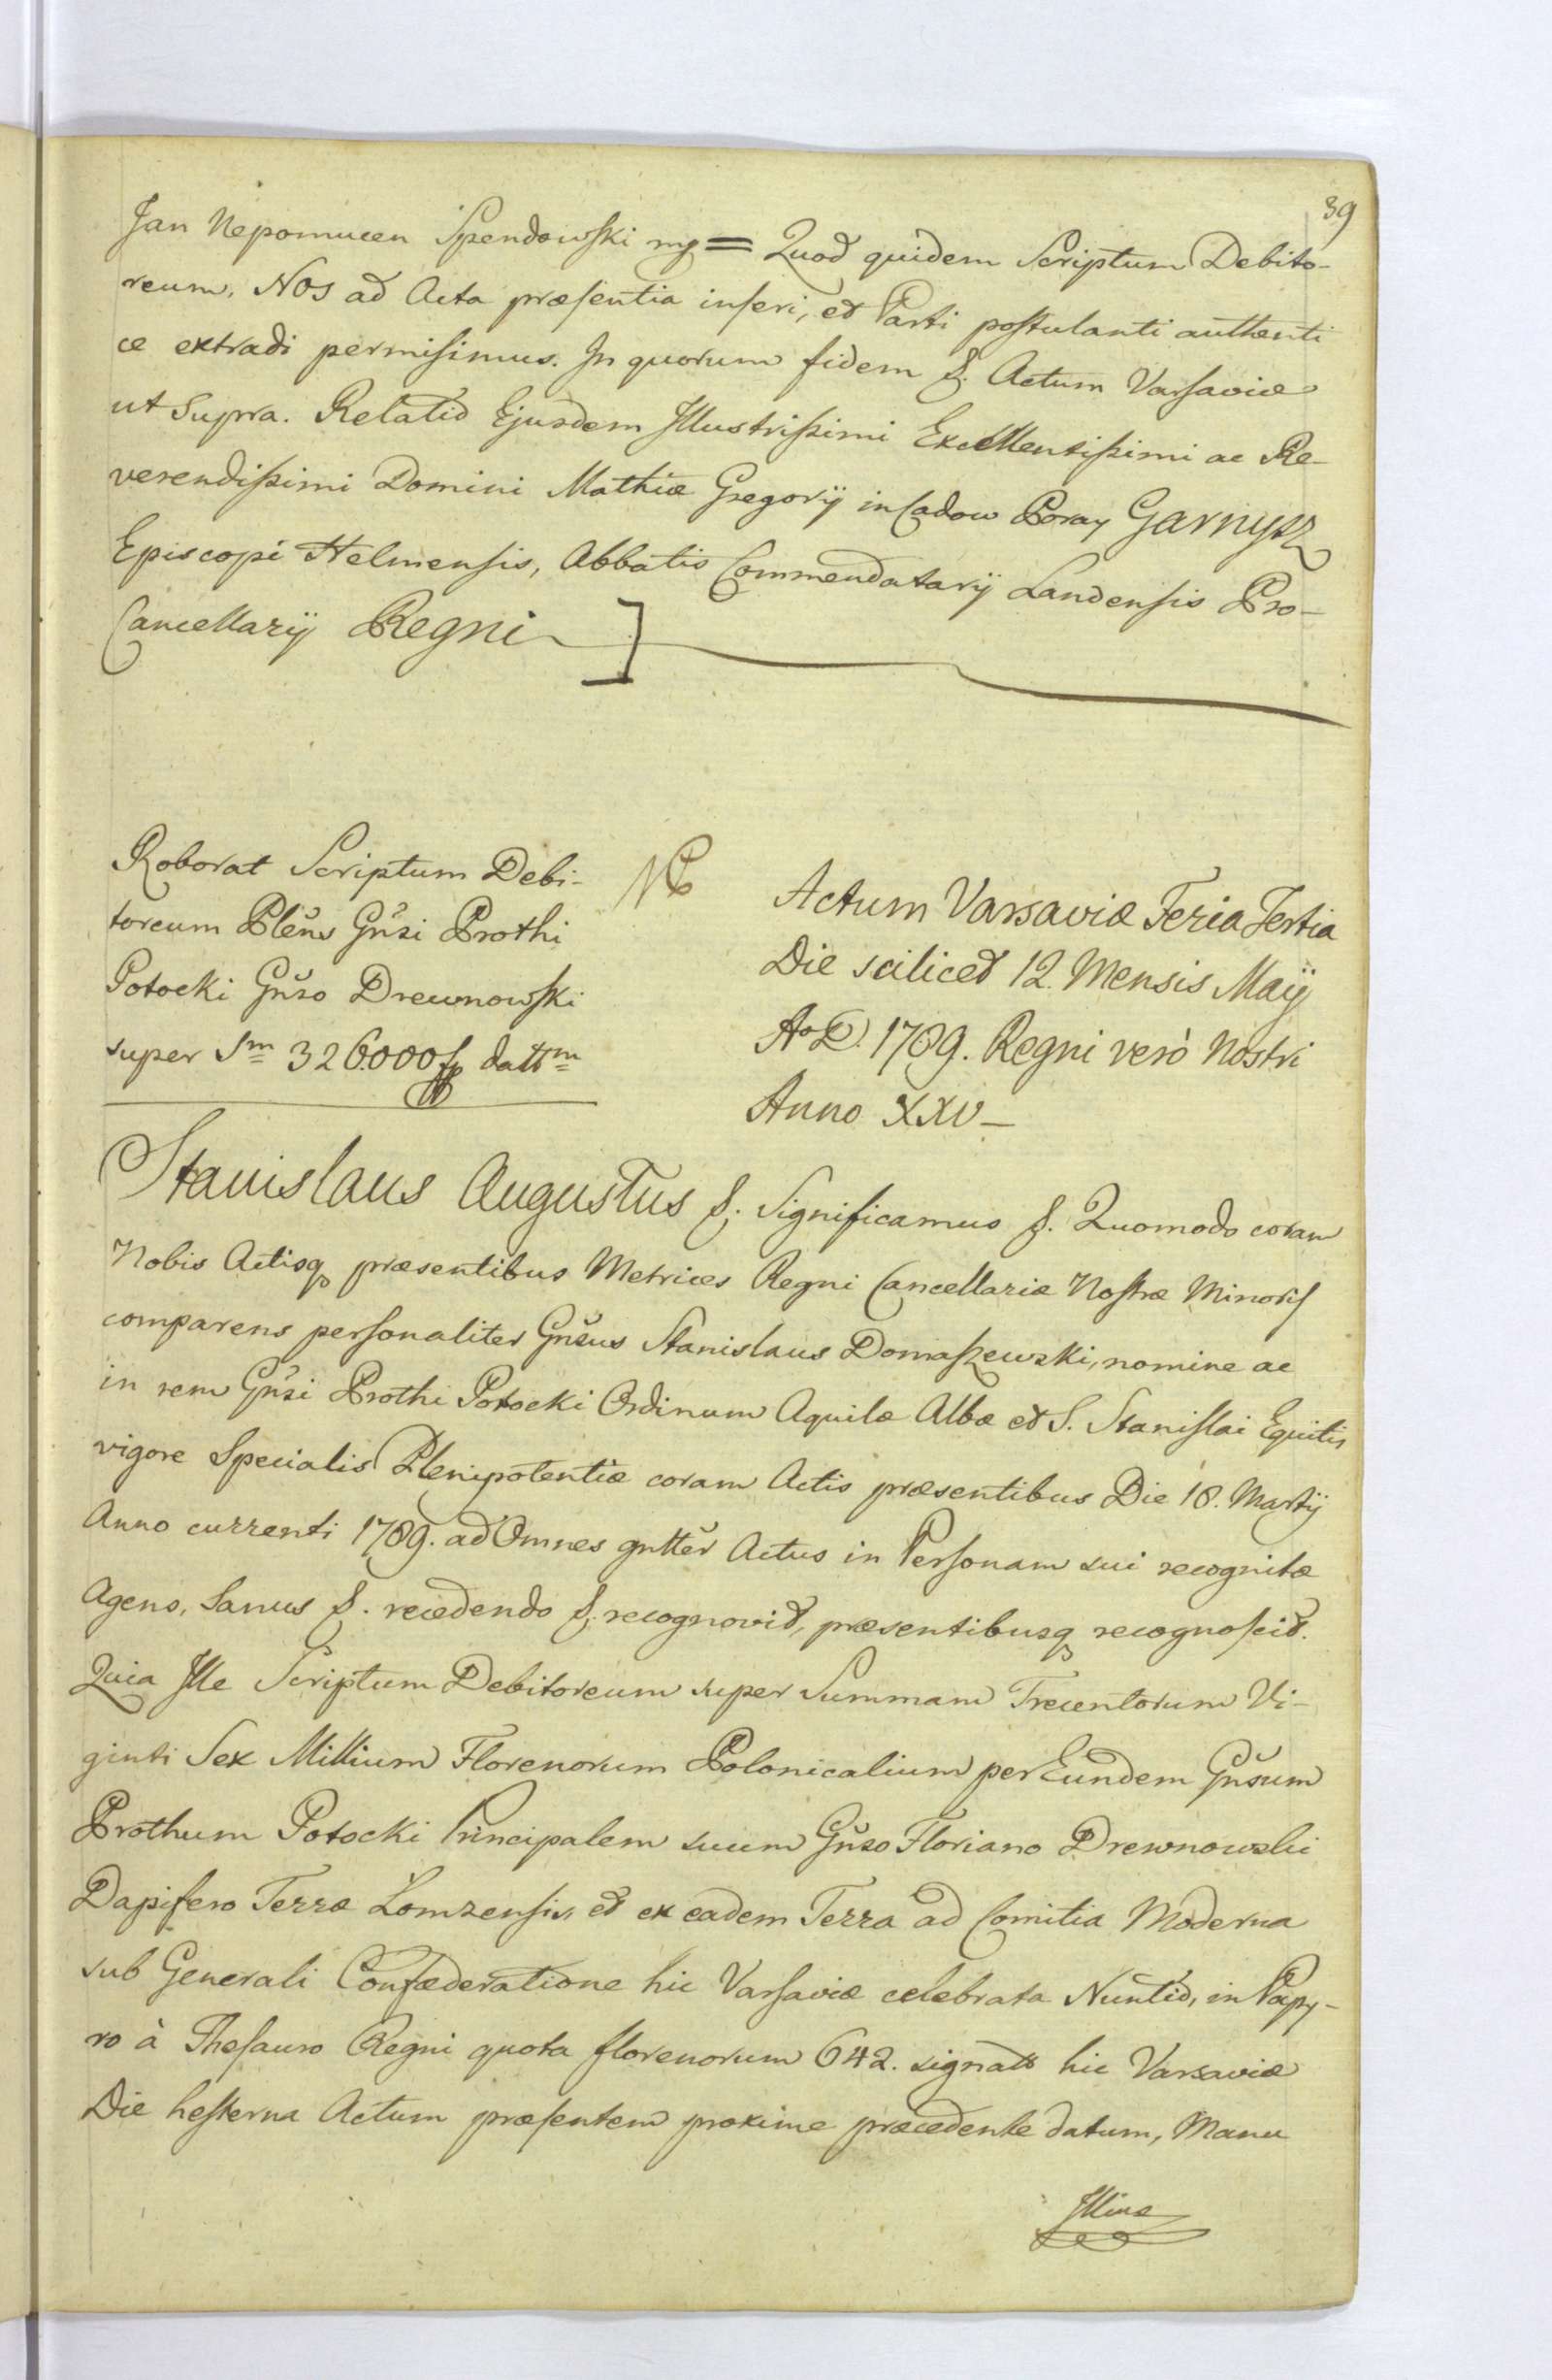 39
Jan Nepomucen Spendowski mp = Quod quidem Scriptum Debito-
reum, Nos ad Acta præsentia inseri, et Parti postulanti authenti
ce extradi permisimus. In quorum fidem &. Actum Varsaviæ
ut Supra. Relatio Ejusdem Illustrissimi Excellentissimi ac Re-
verendissimi Domini Mathiæ Gregorij in Cadow Poray Garnysz
Episcopi Helmensis, Abbatis Commendatarij Landensis Pro-
Cancellarij Regni
Roborat Scriptum Debi-
toreum Plěns Gňsi Prothi
Potocki Gňso Drewnowski
super Sm 326000 fp dattm
Actum Varsaviæ Feria Tertia
Die scilicet 12. Mensis Maij
Ao D. 1789. Regni verò Nostri
Anno XXV_
Stanislaus Augustus &. Significamus &. Quomodo coram
Nobis Actisq præsentibus Metrices Regni Cancellariæ Nostræ Minoris
comparens personaliter Gňsus Stanislaus Domaszewski, nomine ac
in rem Gňsi Prothi Potocki Ordinum Aquilæ Albæ et S. Stanislai Equitis
vigore Specialis Plenipotentiæ coram Actis præsentibus Die 18. Martij
Anno currenti 1789. ad Omnes gntter Actus in Personam sui recognitæ
Agens, Sanus &. recedendo &. recognovit, præsentibusq recognoscit.
Quia Ille Scriptum Debitoreum super Summam Trecentorum Vi-
ginti Sex Millium Florenorum Polonicalium per Eundem Gňsum
Prothum Potocki Principalem suum Gňso Floriano Drewnowski
Dapifero Terræ Lomzensis et ex eadem Terra ad Comitia Moderna
sub Generali Confæderatione hic Varsaviæ celebrata Nuntio, in Papy-
ro à Thesauro Regni quota florenorum 642. signatt hic Varsaviæ
Die hesterna Actum præsentem proxime præcedente datum, Manu
Illius